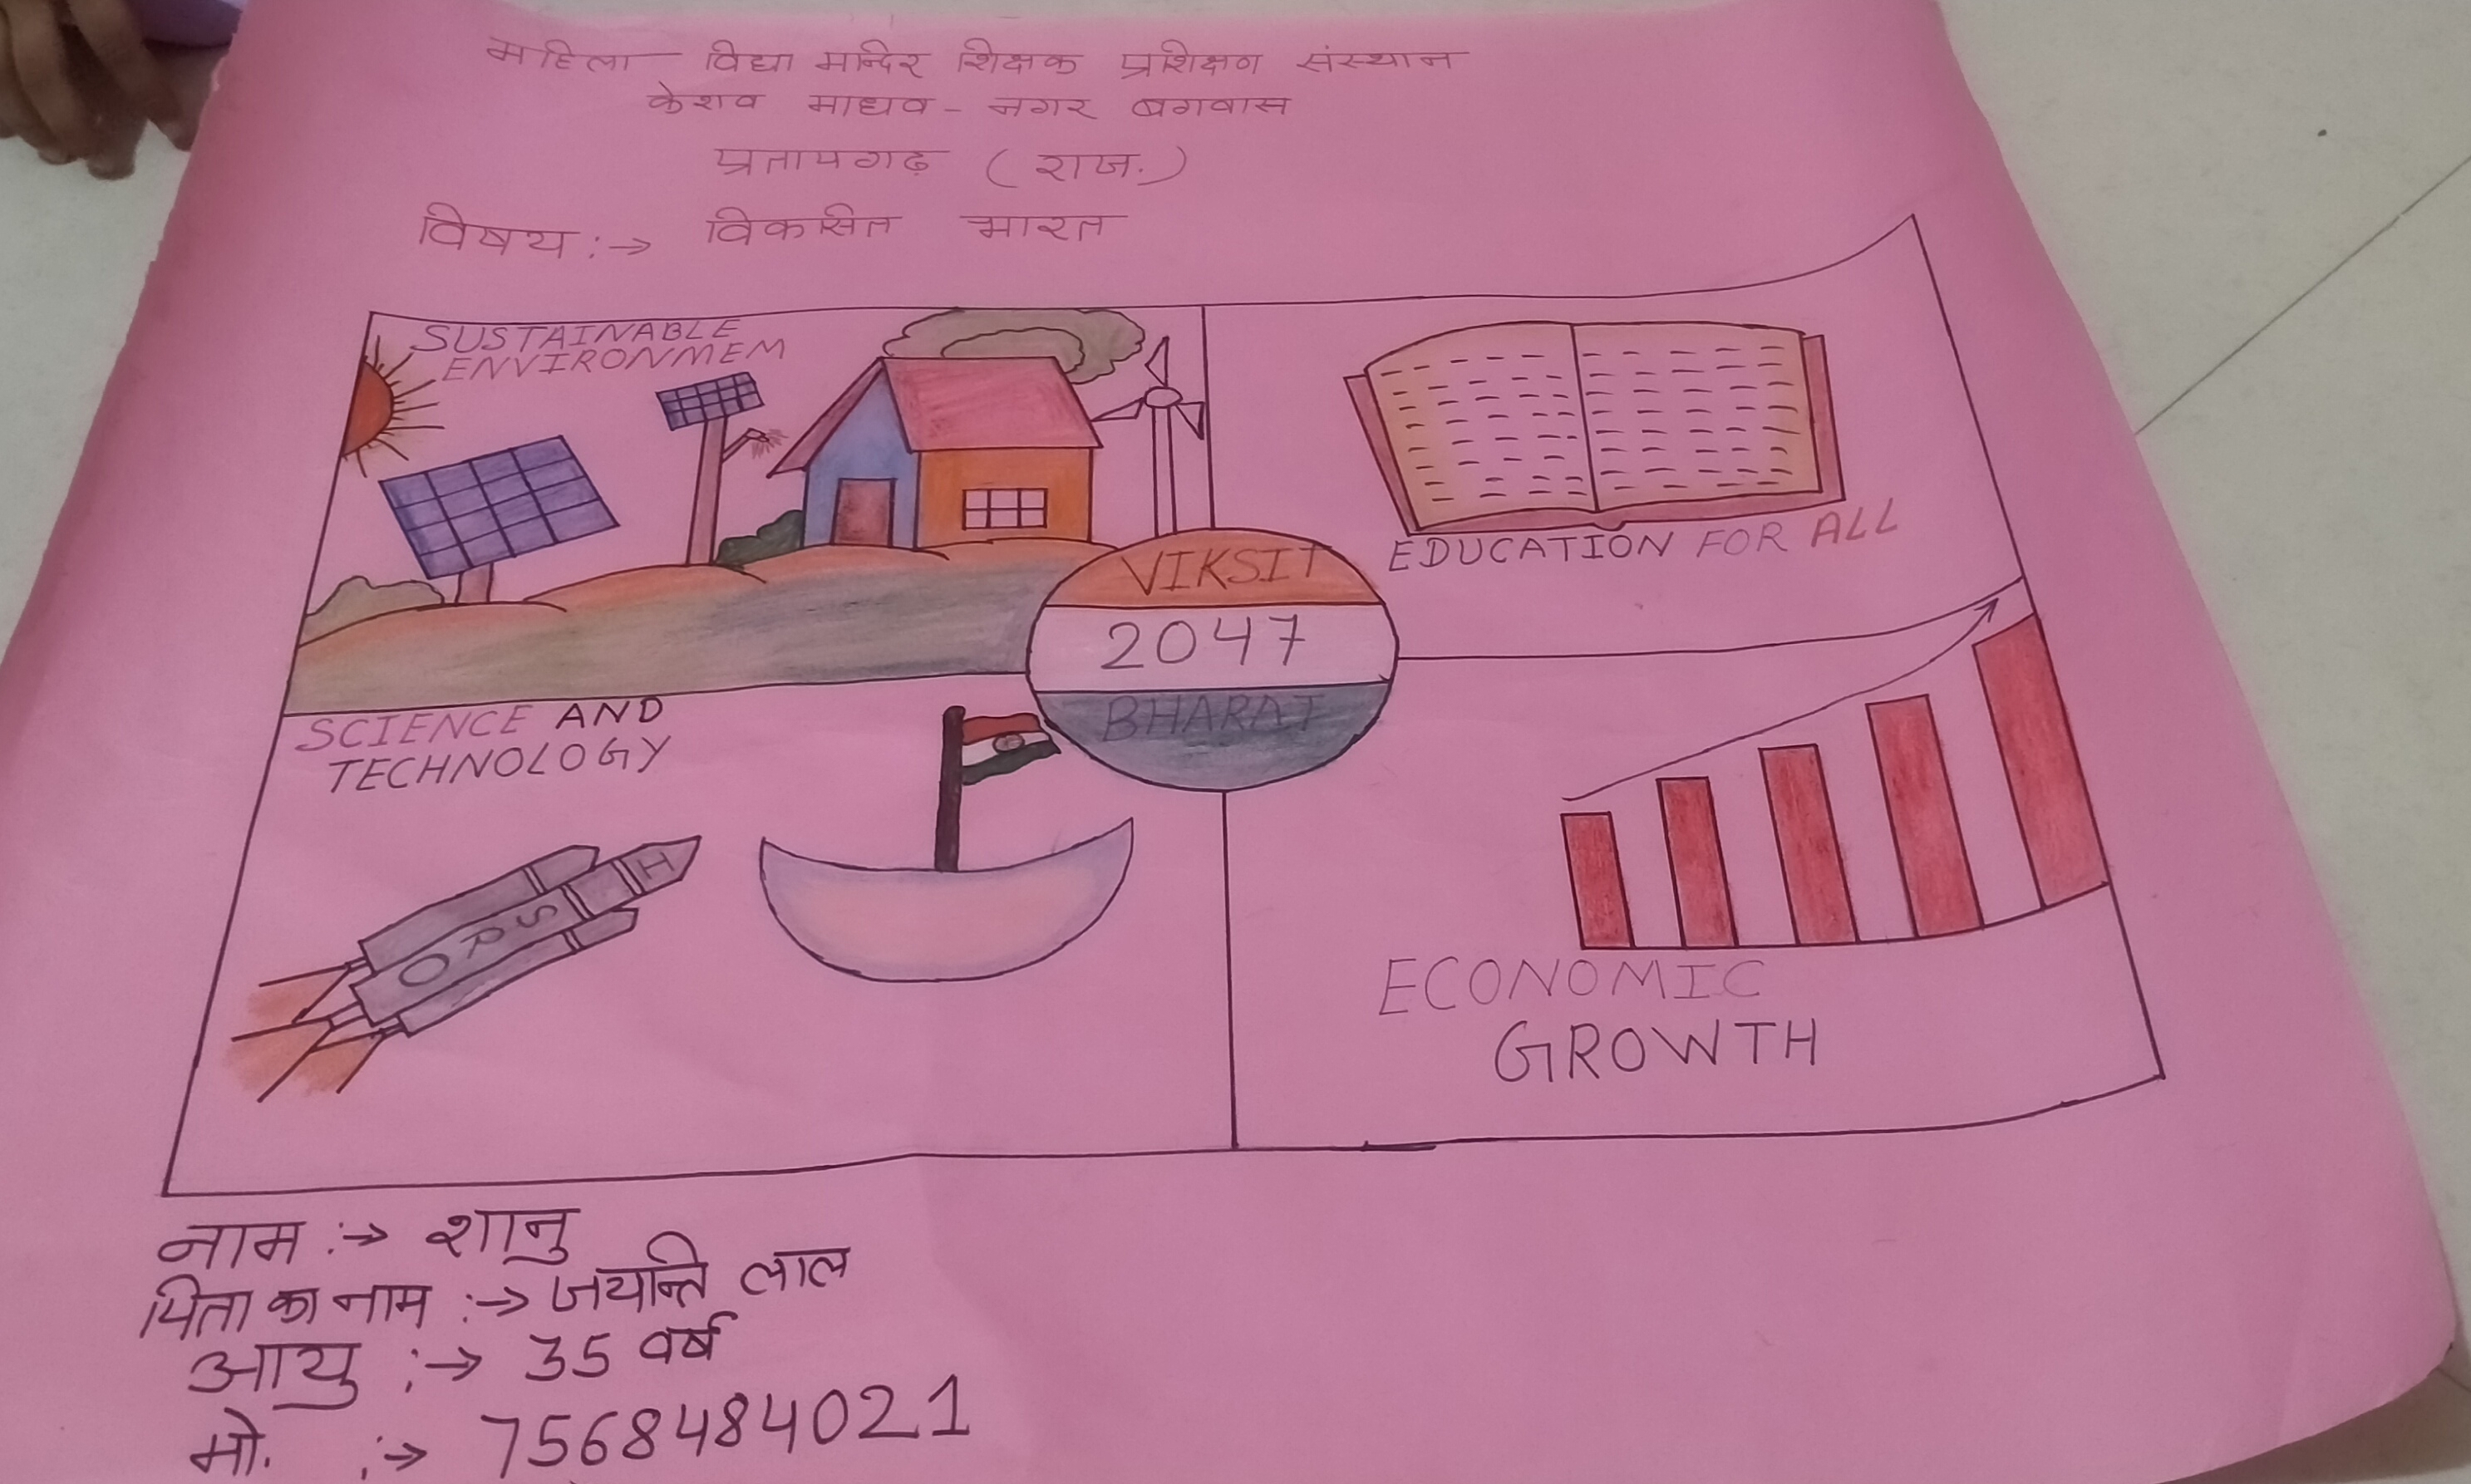 महिला विद्या मन्दिर शिक्षक प्रशिक्षण संस्थान
केशव माधव - नगर बगवास
प्रतापगढ़ (राज.)
विषय :→ विकसित भारत
SUSTAINABLE
ENVIRONMEM
EDUCATION FOR ALL
VIKSIT
2047
BHARAT
SCIENCE AND
TECHNOLOGY
ISRO
ECONOMIC
GROWTH
नाम :→ शानु
पिता का नाम :→ जयन्ति लाल
आयु :→ 35 वर्ष
मो. :→ 7568484021